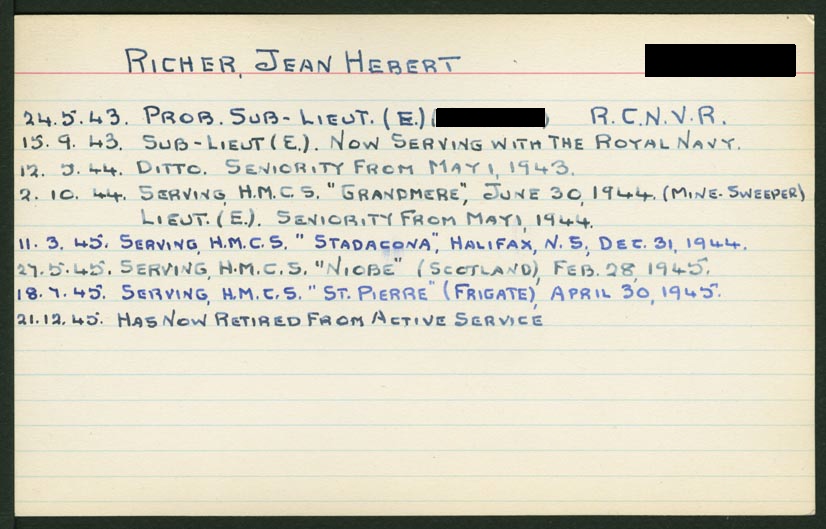 RICHER, JEAN HEBERT
24.5.43. PROB. SUB-LIEUT. (E.) ( ) R.C.N.V.R.
15.9.43. SUB-LIEUT (E.). NOW SERVING WITH THE ROYAL NAVY.
12. 5. 44. DITTO. SENIORITY FROM MAY 1, 1943.
2. 10. 44. SERVING, H.M.C.S. "GRANDMERE", JUNE 30, 1944. (MINE-SWEEPER)
LIEUT. (E.). SENIORITY FROM MAY 1, 1944.
11. 3. 45. SERVING, H.M.C.S. "STADACONA", HALIFAX, N.S, DEC. 31, 1944.
27.5.45. SERVING, H.M.C.S. "NIOBE" (SCOTLAND), FEB. 28, 1945.
18.7.45. SERVING, H.M.C.S. "ST. PIERRE" (FRIGATE), APRIL 30, 1945.
21.12.45. HAS NOW RETIRED FROM ACTIVE SERVICE